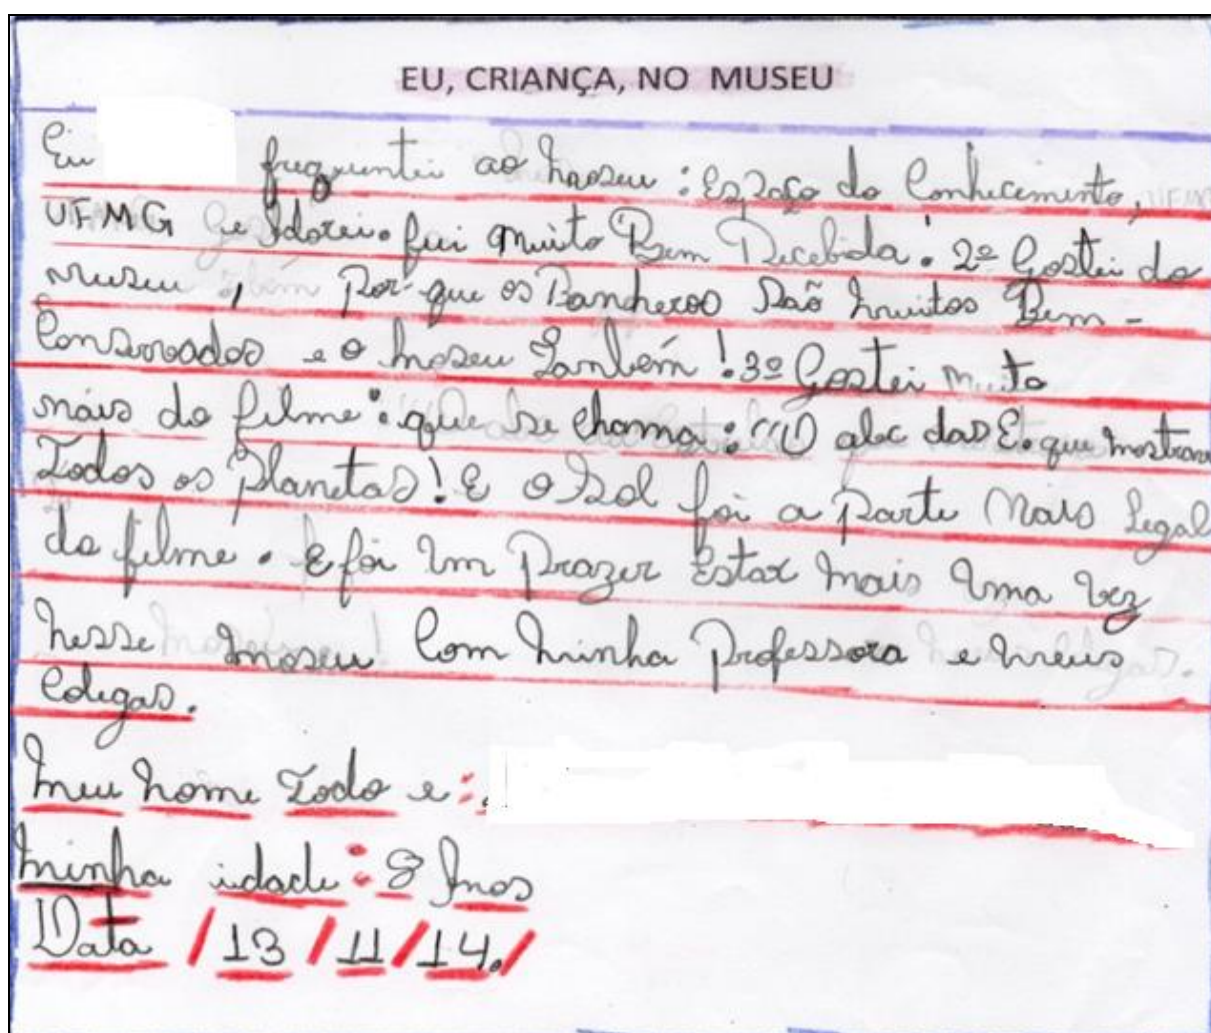 EU, CRIANÇA, NO MUSEU
Eu frequentei ao moseu : Espaço do Conhecimento,
UFMG e Adorei. fui muito Bem Recebida! 2º Gostei do
museu, Por que os Bancheros São muitos Bem -
Conservados e o moseu Também! 3º Gostei muito
mais do filme: que se chama: "O abc das E. que mostrava
Todos os Planetas! E o Sol foi a Parte Mais Legal
do filme. E foi Um Prazer Estar mais Uma Vez
nesse moseu Com minha Professora e meus
Colegas.
meu nome Todo e :
minha idade : 8 Anos
Data /13/11/14./